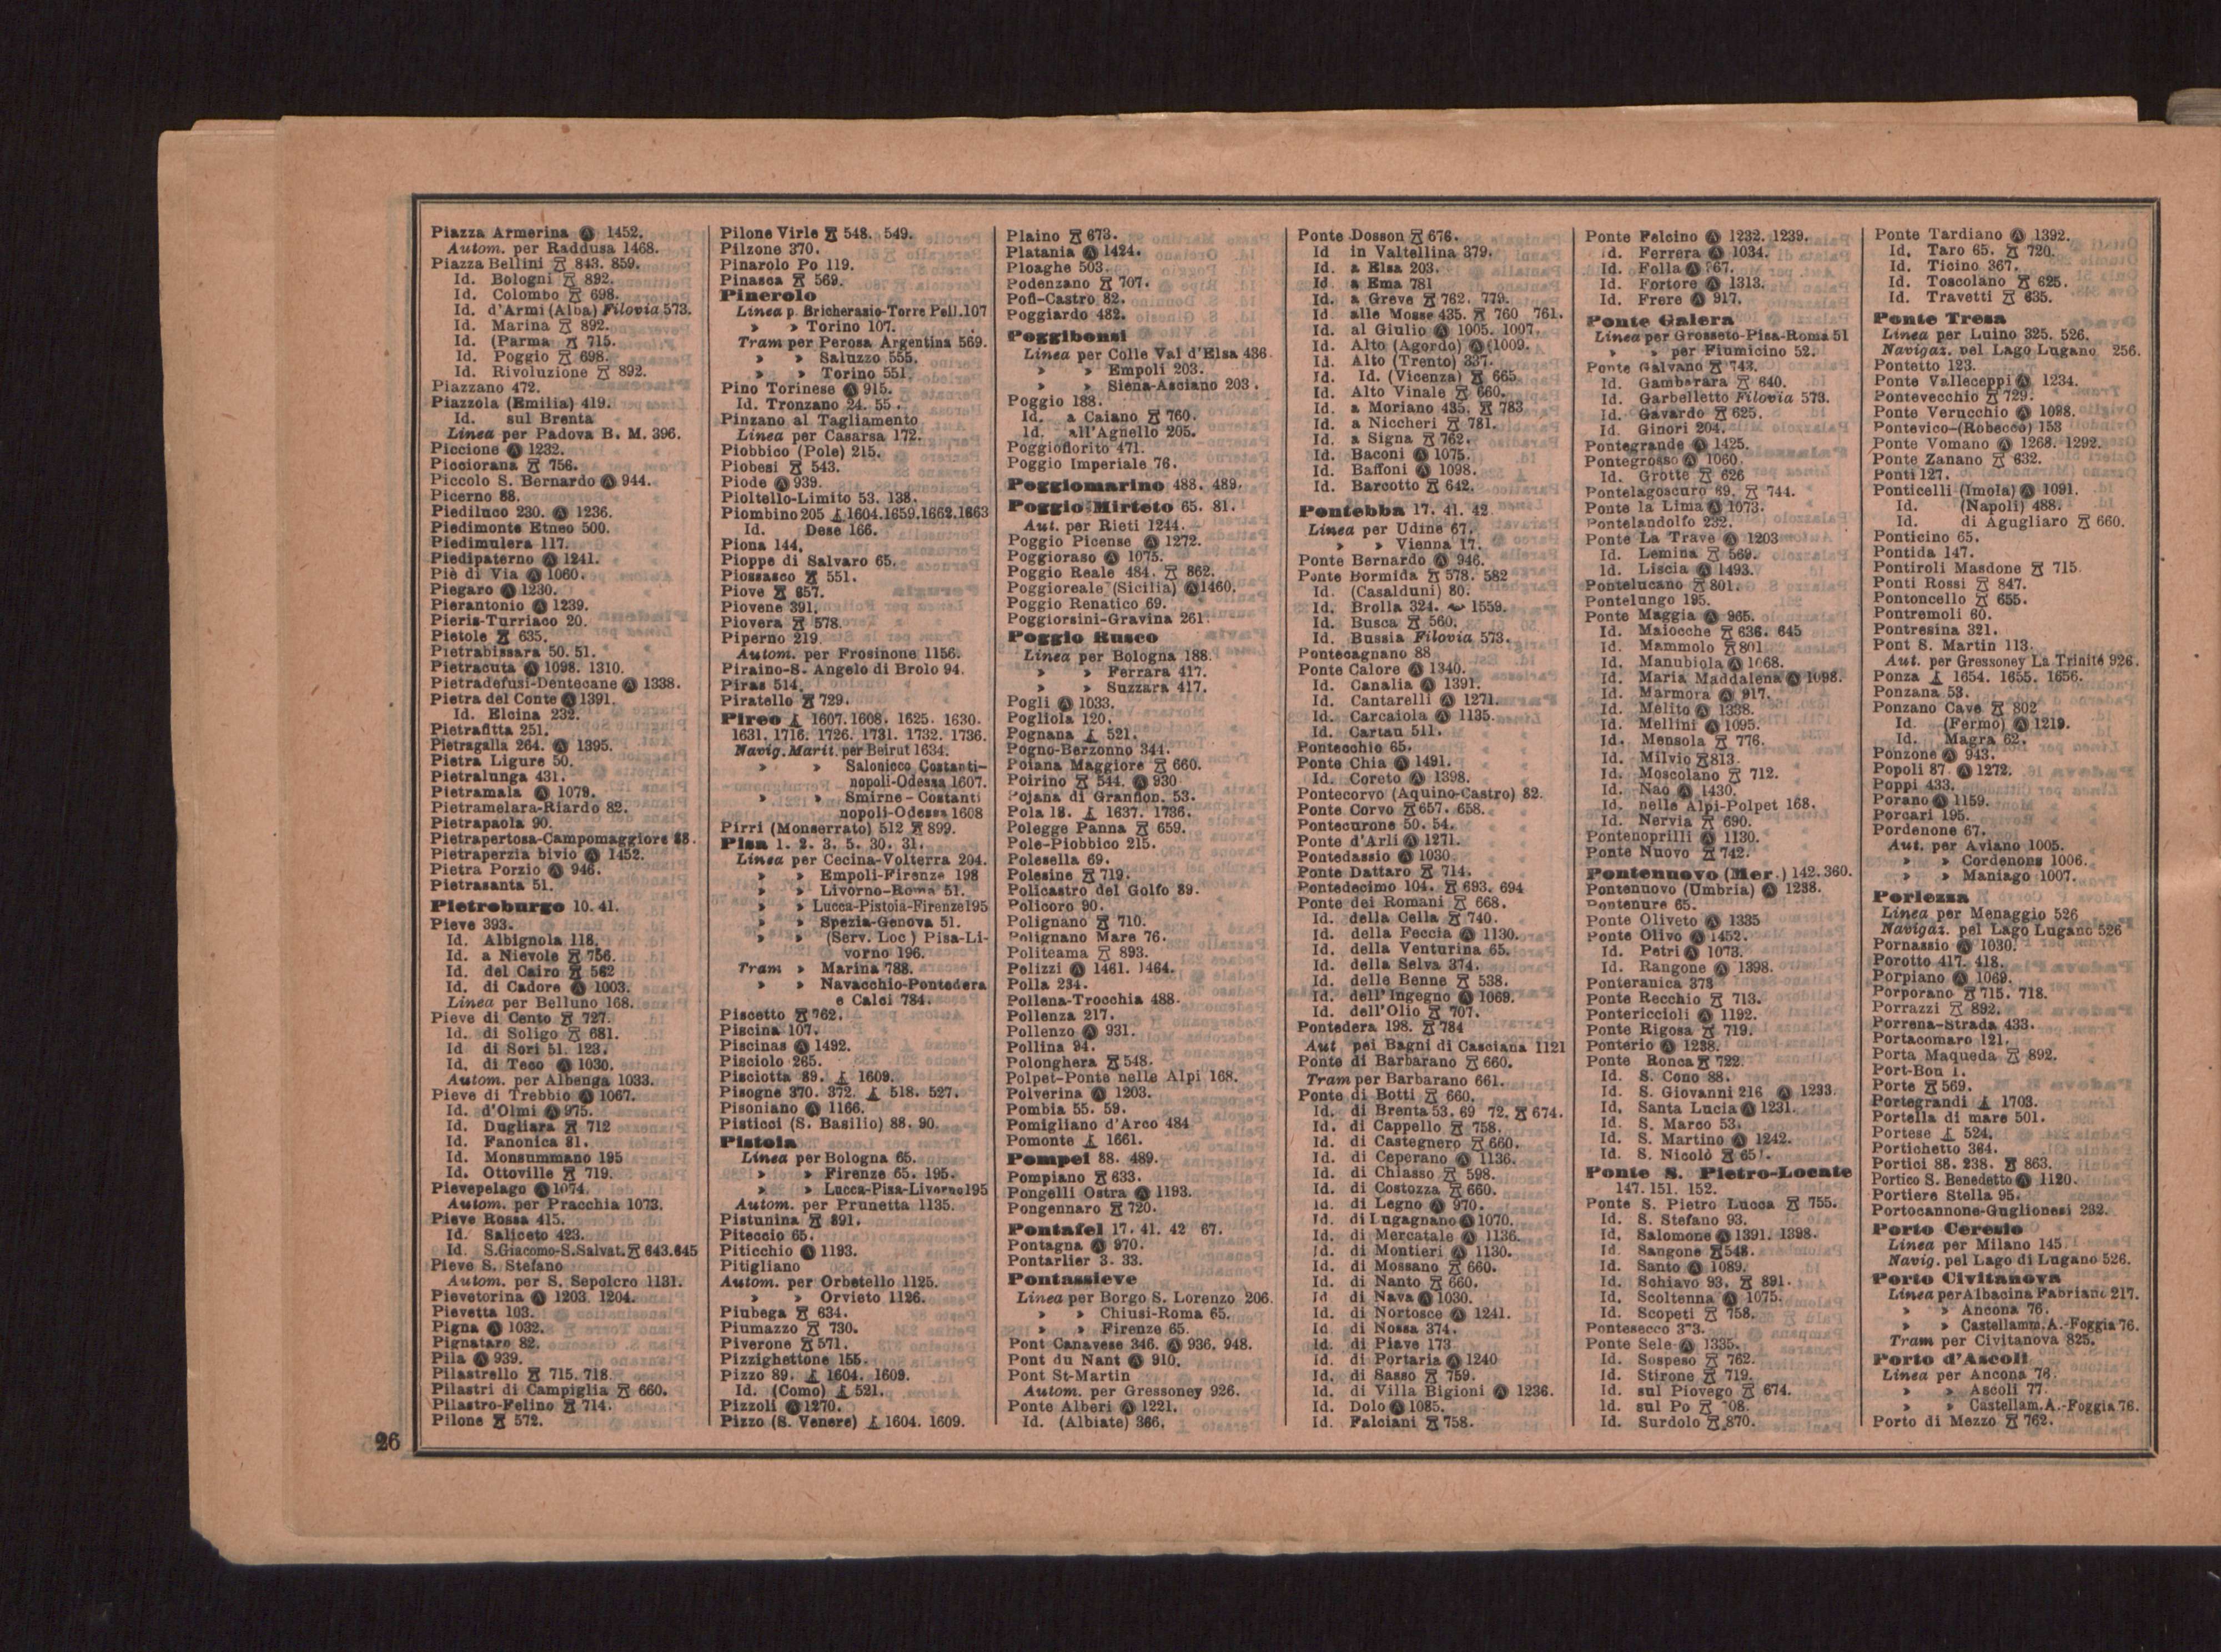 Piazza Armerina Ⓐ 1452.
Autom. per Raddusa 1468.
Piazza Bellini 843. 859.
Id. Bologni 892.
Id. Colombo 698.
Id. d'Armi (Alba) Filovia 573.
Id. Marina 892.
Id. (Parma 715.
Id. Poggio 698.
Id. Rivoluzione 892.
Piazzano 472.
Piazzola (Emilia) 419.
Id. sul Brenta
Linea per Padova B. M. 396.
Piccione Ⓐ 1232.
Picciorana 756.
Piccolo S. Bernardo Ⓐ 944.
Picerno 88.
Piediluco 230. Ⓐ 1236.
Piedimonte Etneo 500.
Piedimulera 117.
Piedipaterno Ⓐ 1241.
Piè di Via Ⓐ 1060.
Piegaro Ⓐ 1230.
Pierantonio Ⓐ 1239.
Pieris-Turriaco 20.
Pietole 635.
Pietrabissara 50. 51.
Pietracuta Ⓐ 1098. 1310.
Pietradefusi-Dentecane Ⓐ 1338.
Pietra del Conte Ⓐ 1391.
Id. Elcina 232.
Pietrafitta 251.
Pietragalla 264. Ⓐ 1395.
Pietra Ligure 50.
Pietralunga 431.
Pietramala Ⓐ 1079.
Pietramelara-Riardo 82.
Pietrapaola 90.
Pietrapertosa-Campomaggiore 88.
Pietraperzia bivio Ⓐ 1452.
Pietra Porzio Ⓐ 946.
Pietrasanta 51.
Pietroburgo 10. 41.
Pieve 393.
Id. Albignola 118.
Id. a Nievole 756.
Id. del Cairo 562
Id. di Cadore Ⓐ 1003.
Linea per Belluno 168.
Pieve di Cento 727.
Id. di Soligo 681.
Id di Sori 51. 123.
Id. di Teco Ⓐ 1030.
Autom. per Albenga 1033.
Pieve di Trebbio Ⓐ 1067.
Id. d'Olmi Ⓐ 975.
Id. Dugliara 712
Id. Fanonica 81.
Id. Monsummano 195
Id. Ottoville 719.
Pievepelago Ⓐ 1074.
Autom. per Pracchia 1073.
Pieve Rossa 415.
Id. Saliceto 423.
Id. S.Giacomo-S.Salvat. 643.645
Pieve S. Stefano
Autom. per S. Sepolcro 1131.
Pievetorina Ⓐ 1203. 1204.
Pievetta 103.
Pigna Ⓐ 1032.
Pignataro 82.
Pila Ⓐ 939.
Pilastrello 715. 718.
Pilastri di Campiglia 660.
Pilastro-Felino 714.
Pilone 572.
Pilone Virle 548. 549.
Pilzone 370.
Pinarolo Po 119.
Pinasca 569.
Pinerolo
Linea p. Bricherasio-Torre Pell.107
» » Torino 107.
Tram per Perosa Argentina 569.
» » Saluzzo 555.
» » Torino 551.
Pino Torinese Ⓐ 915.
Id. Tronzano 24. 55.
Pinzano al Tagliamento
Linea per Casarsa 172.
Piobbico (Pole) 215.
Piobesi 543.
Piode Ⓐ 939.
Pioltello-Limito 53. 138.
Piombino 205 1604.1659.1662.1663
Id. Dese 166.
Piona 144.
Pioppe di Salvaro 65.
Piossasco 551.
Piove 657.
Piovene 391.
Piovera 578.
Piperno 219.
Autom. per Frosinone 1156.
Piraino-S. Angelo di Brolo 94.
Piras 514.
Piratello 729.
Pireo 1607. 1608. 1625. 1630.
1631. 1716. 1726. 1731. 1732. 1736.
Navig. Marit. per Beirut 1634.
» » Salonicco Costanti-
nopoli-Odessa 1607.
» » Smirne-Costanti
nopoli-Odessa 1608
Pirri (Monserrato) 512 899.
Pisa 1. 2. 3. 5. 30. 31.
Linea per Cecina-Volterra 204.
» » Empoli-Firenze 198
» » Livorno-Roma 51.
» » Lucca-Pistoia-Firenze195
» » Spezia-Genova 51.
» » (Serv. Loc) Pisa-Li-
vorno 196.
Tram » Marina 788.
» » Navacchio-Pontedera
e Calci 784.
Piscetto 762.
Piscina 107.
Piscinas Ⓐ 1492.
Pisciolo 265.
Pisciotta 89. 1609.
Pisogne 370. 372. 518. 527.
Pisoniano Ⓐ 1166.
Pisticci (S. Basilio) 88. 90.
Pistoia
Linea per Bologna 65.
» » Firenze 65. 195.
» » Lucca-Pisa-Livorno195
Autom. per Prunetta 1135.
Pistunina 891.
Piteccio 65.
Piticchio Ⓐ 1193.
Pitigliano
Autom. per Orbetello 1125.
» » Orvieto 1126.
Piubega 634.
Piumazzo 730.
Piverone 571.
Pizzighettone 155.
Pizzo 89. 1604. 1609.
Id. (Como) 521.
Pizzoli Ⓐ 1270.
Pizzo (S. Venere) 1604. 1609.
Plaino 673.
Platania Ⓐ 1424.
Ploaghe 503.
Podenzano 707.
Pofi-Castro 82.
Poggiardo 482.
Poggibonsi
Linea per Colle Val d'Elsa 436.
» » Empoli 203.
» » Siena-Asciano 203.
Poggio 188.
Id. a Caiano 760.
Id. all'Agnello 205.
Poggiofiorito 471.
Poggio Imperiale 76.
Poggiomarino 488. 489.
Poggio Mirteto 65. 81.
Aut. per Rieti 1244.
Poggio Picense Ⓐ 1272.
Poggioraso Ⓐ 1075.
Poggio Reale 484. 862.
Poggioreale (Sicilia) Ⓐ 1460.
Poggio Renatico 69.
Poggiorsini-Gravina 261.
Poggio Rusco
Linea per Bologna 188.
» » Ferrara 417.
» » Suzzara 417.
Pogli Ⓐ 1033.
Pogliola 120.
Pognana 521.
Pogno-Berzonno 344.
Poiana Maggiore 660.
Poirino 544. Ⓐ 930
Pojana di Granfion. 53.
Pola 18. 1637. 1736.
Polegge Panna 659.
Pole-Piobbico 215.
Polesella 69.
Polesine 719.
Policastro del Golfo 89.
Policoro 90.
Polignano 710.
Polignano Mare 76.
Politeama 893.
Polizzi Ⓐ 1461. 1464.
Polla 234.
Pollena-Trocchia 488.
Pollenza 217.
Pollenzo Ⓐ 931.
Pollina 94.
Polonghera 548.
Polpet-Ponte nelle Alpi 168.
Polverina Ⓐ 1203.
Pombia 55. 59.
Pomigliano d'Arco 484
Pomonte 1661.
Pompei 88. 489.
Pompiano 633.
Pongelli Ostra Ⓐ 1193.
Pongennaro 720.
Pontafel 17. 41. 42 67.
Pontagna Ⓐ 970.
Pontarlier 3. 33.
Pontassieve
Linea per Borgo S. Lorenzo 206.
» » Chiusi-Roma 65.
» » Firenze 65.
Pont Canavese 346. Ⓐ 936. 948.
Pont du Nant Ⓐ 910.
Pont St-Martin
Autom. per Gressoney 926.
Ponte Alberi Ⓐ 1221.
Id. (Albiate) 366.
Ponte Dosson 676.
Id in Valtellina 379.
Id. a Elsa 203.
Id a Ema 781
Id. a Greve 762. 779.
Id alle Mosse 435. 760 761.
Id. al Giulio Ⓐ 1005. 1007.
Id. Alto (Agordo) Ⓐ (1009.
Id. Alto (Trento) 337.
Id. Id. (Vicenza) 665
Id. Alto Vinale 660.
Id. a Moriano 435. 783
Id. a Niccheri 781.
Id. a Signa 762.
Id. Baconi Ⓐ 1075.
Id. Baffoni Ⓐ 1098.
Id. Barcotto 642.
Pontebba 17. 41. 42
Linea per Udine 67.
» » Vienna 17.
Ponte Bernardo Ⓐ 946.
Ponte Bormida 578. 582
Id. (Casalduni) 80.
Id. Brolla 324. 1559.
Id. Busca 560.
Id. Bussia Filovia 573.
Pontecagnano 88
Ponte Calore Ⓐ 1340.
Id. Canalia Ⓐ 1391.
Id. Cantarelli Ⓐ 1271.
Id. Carcaiola Ⓐ 1135.
Id. Cartau 511.
Pontecchio 65.
Ponte Chia Ⓐ 1491.
Id. Coreto Ⓐ 1398.
Pontecorvo (Aquino-Castro) 82.
Ponte Corvo 657. 658.
Pontecurone 50. 54.
Ponte d'Arli Ⓐ 1271.
Pontedassio Ⓐ 1030
Ponte Dattaro 714.
Pontedecimo 104. 693. 694
Ponte dei Romani 668.
Id. della Cella 740.
Id. della Feccia Ⓐ 1130.
Id. della Venturina 65.
Id. della Selva 374.
Id. delle Benne 538.
Id. dell'Ingegno Ⓐ 1069.
Id. dell'Olio 707.
Pontedera 198. 784
Aut pei Bagni di Casciana 1121
Ponte di Barbarano 660.
Tram per Barbarano 661.
Ponte di Botti 660.
Id. di Brenta 53. 69 72. 674.
Id. di Cappello 758.
Id. di Castegnero 660.
Id. di Ceperano Ⓐ 1136.
Id. di Chiasso 598.
Id. di Costozza 660.
Id. di Legno Ⓐ 970.
Id. di Lugagnano Ⓐ 1070.
Id. di Mercatale Ⓐ 1136.
Id. di Montieri Ⓐ 1130.
Id. di Mossano 660.
Id. di Nanto 660.
Id. di Nava Ⓐ 1030.
Id. di Nortosce Ⓐ 1241.
Id. di Nossa 374.
Id. di Piave 173
Id. di Portaria Ⓐ 1240
Id. di Sasso 759.
Id. di Villa Bigioni Ⓐ 1236.
Id. Dolo Ⓐ 1085.
Id. Falciani 758.
Ponte Felcino Ⓐ 1232. 1239.
Id. Ferrera Ⓐ 1034.
Id. Folla Ⓐ
Id. Fortore Ⓐ 1313.
Id. Frere Ⓐ 917.
Ponte Galera
Linea per Grosseto-Pisa-Roma 51
» » per Fiumicino 52.
Ponte Galvano 743.
Id. Gambarara 640.
Id. Garbelletto Filovia 573.
Id. Gavardo 625.
Id. Ginori 204.
Pontegrande Ⓐ 1425.
Pontegrosso Ⓐ 1060.
Id. Grotte 626
Pontelagoscuro 69. 744.
Ponte la Lima Ⓐ 1073.
Pontelandolfo 232.
Ponte La Trave Ⓐ 1203
Id. Lemina 569.
Id. Liscia Ⓐ 1493.
Pontelucano 801.
Pontelungo 195.
Ponte Maggia Ⓐ 965.
Id. Maiocche 636. 645
Id. Mammolo 801
Id. Manubiola Ⓐ 1068.
Id. Maria Maddalena Ⓐ 1098.
Id. Marmora Ⓐ 917.
Id. Melito Ⓐ 1338.
Id. Mellini Ⓐ 1095.
Id. Mensola 776.
Id. Milvio 813.
Id. Moscolano 712.
Id. Nao Ⓐ 1430.
Id. nelle Alpi-Polpet 168.
Id. Nervia 690.
Pontenoprilli Ⓐ 1130.
Ponte Nuovo 742.
Pontenuovo (Mer.) 142. 360.
Pontenuovo (Umbria) Ⓐ 1238.
Pontenure 65.
Ponte Oliveto Ⓐ 1335
Ponte Olivo Ⓐ 1452.
Id. Petri Ⓐ 1073.
Id. Rangone Ⓐ 1398.
Ponteranica 373
Ponte Recchio 713.
Pontericcioli Ⓐ 1192.
Ponte Rigosa 719.
Ponterio Ⓐ 1238.
Ponte Ronca 722.
Id. S. Cono 88.
Id. S. Giovanni 216 Ⓐ 1233.
Id. Santa Lucia Ⓐ 1231.
Id. S. Marco 53.
Id. S. Martino Ⓐ 1242.
Id. S. Nicolò
Ponte S. Pietro-Locate
147. 151. 152.
Ponte S. Pietro Lucca 755.
Id. S. Stefano 93.
Id. Salomone Ⓐ 1391. 1398.
Id. Sangone 548.
Id. Santo Ⓐ 1089.
Id. Schiavo 93. 891.
Id. Scoltenna Ⓐ 1075.
Id. Scopeti 758.
Pontesecco 373.
Ponte Sele Ⓐ 1335.
Id. Sospeso 762.
Id. Stirone 719.
Id. sul Piovego 674.
Id. sul Po
Id. Surdolo 870.
Ponte Tardiano Ⓐ 1392.
Id. Taro 65. 720.
Id. Ticino 367.
Id. Toscolano 625.
Id. Travetti 635.
Ponte Tresa
Linea per Luino 325. 526.
Navigaz. pel Lago Lugano 256.
Pontetto 123.
Ponte Valleceppi Ⓐ 1234.
Pontevecchio 729.
Ponte Verucchio Ⓐ 1098.
Pontevico-(Robecco) 153
Ponte Vomano Ⓐ 1268. 1292.
Ponte Zanano 632.
Ponti 127.
Ponticelli (Imola) Ⓐ 1091.
Id. (Napoli) 488.
Id. di Agugliaro 660.
Ponticino 65.
Pontida 147.
Pontiroli Masdone 715
Ponti Rossi 847.
Pontoncello 655.
Pontremoli 60.
Pontresina 321.
Pont S. Martin 113.
Aut. per Gressoney La Trinité 926.
Ponza 1654. 1655. 1656.
Ponzana 53.
Ponzano Cave 802
Id. (Fermo) Ⓐ 1219.
Id. Magra 62.
Ponzone Ⓐ 943.
Popoli 87. Ⓐ 1272.
Poppi 433.
Porano Ⓐ 1159.
Porcari 195.
Pordenone 67.
Aut. per Aviano 1005.
» » Cordenons 1006.
» » Maniago 1007.
Porlezza
Linea per Menaggio 526
Navigaz. pel Lago Lugano 526
Pornassio Ⓐ 1030.
Porotto 417. 418.
Porpiano Ⓐ 1069.
Porporano 715. 718.
Porrazzi 892.
Porrena-Strada 433.
Portacomaro 121.
Porta Maqueda 892.
Port-Bou 1.
Porte 569.
Portegrandi 1703.
Portella di mare 501.
Portese 524.
Portichetto 364.
Portici 88. 238. 863.
Portico S. Benedetto Ⓐ 1120.
Portiere Stella 95.
Portocannone-Guglionesi 232.
Porto Ceresio
Linea per Milano 145.
Navig. pel Lago di Lugano 526.
Porto Civitanova
Linea per Albacina Fabriano 217.
» » Ancona 76.
» » Castellamm.A.-Foggia 76.
Tram per Civitanova 825.
Porto d'Ascoli
Linea per Ancona 76.
» » Ascoli 77.
» » Castellam.A.-Foggia 76.
Porto di Mezzo 762.
26